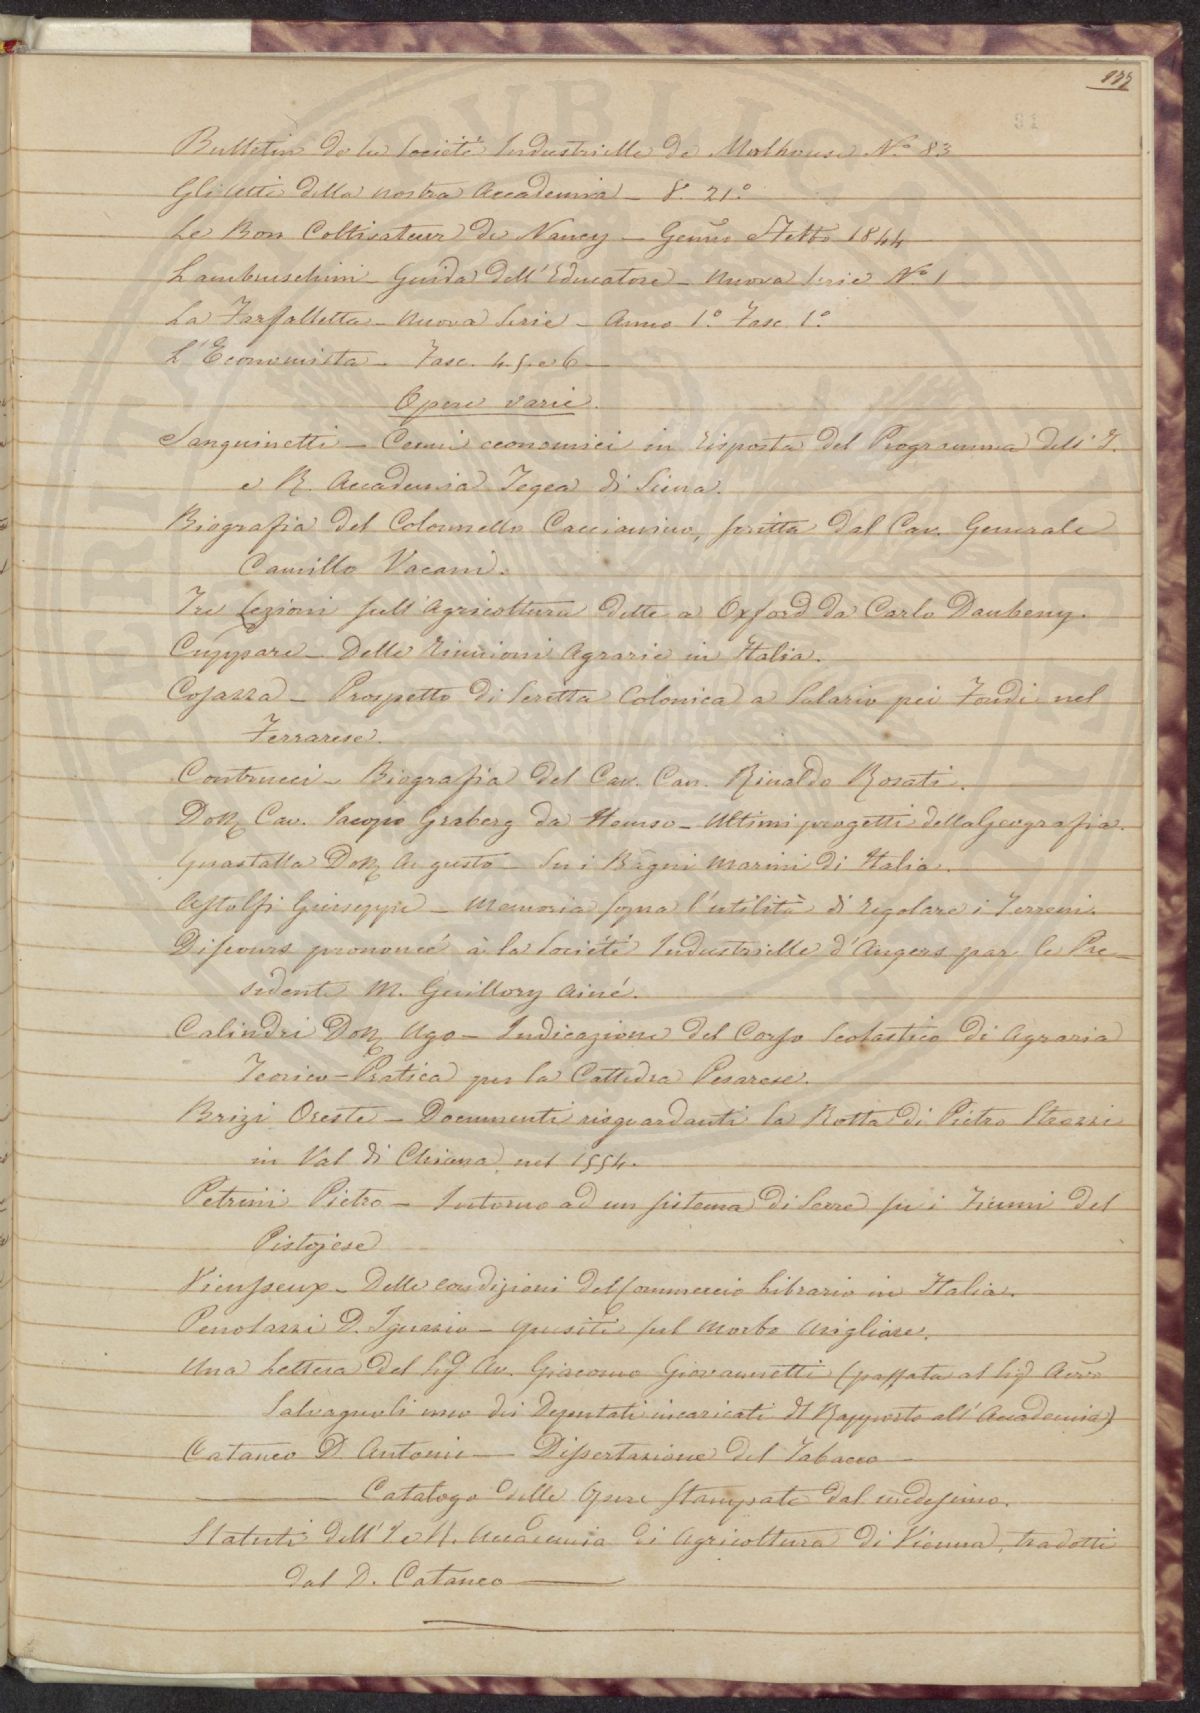 177
Bulletin de la Société Industrielle de Mulhouse N.º 83
Gli Atti della nostra Accademia — V. 21.º
Le Bon Coltivateur de Nancy — Genn. Settb. 1844
Lambruschini — Guida dell'Educatore — Nuova Serie N.º 1
La Farfalletta — Nuova Serie — Anno 1.º Fasc. 1.º
L'Economista — Fasc. 4. 5. e 6 —
Opere varie.
Sanguinetti — Cenni economici in risposta del Programma dell'I.
e R. Accademia Tegea di Siena.
Biografia del Colonnello Caccianino, scritta dal Cav. Generale
Camillo Vacani.
Tre Lezioni sull'Agricoltura dette a Oxford da Carlo Daubeny.
Cuppare — Delle riunioni Agrarie in Italia.
Cosazza — Prospetto di Scritta Colonica a Salario pei Fondi nel
Ferrarese.
Contrucci — Biografia del Cav. Can. Rinaldo Rosati.
Dott. Cav. Iacopo Graberg da Hemso — Ultimi progetti della Geografia.
Guastalla Dott. Augusto — Su i Bagni Marini di Italia.
Astolfi Giuseppe — Memoria sopra l'utilità di regolare i Terreni.
Discours prononcé à la Societé Industrielle d'Angers par le Pre-
sidente M. Guillory Ainé.
Calindri Dott. Ugo — Indicazione del Corso Scolastico di Agraria
Teorico-Pratica per la Cattedra Pesarese.
Brizi Oreste — Documenti risguardanti la Rotta di Pietro Strozzi
in Val di Chiana nel 1554.
Petrini Pietro — Intorno ad un sistema di Serre su i Fiumi del
Pistojese
Vieusseux — Delle condizioni del Commercio Librario in Italia.
Penolazzi D. Ignazio — Quesiti sul Morbo Migliare.
Una Lettera del Sig. Av. Giacomo Giovannetti (passata al Sig. Avvo
Salvagnoli uno dei Deputati incaricati di Rapporto all'Accademia)
Cataneo D. Antonio — Dissertazione del Tabacco —
— Catalogo delle Opere stampate dal medesimo.
Statuti dell'I. e R. Accademia di Agricoltura di Vienna, tradotti
dal D. Cataneo —